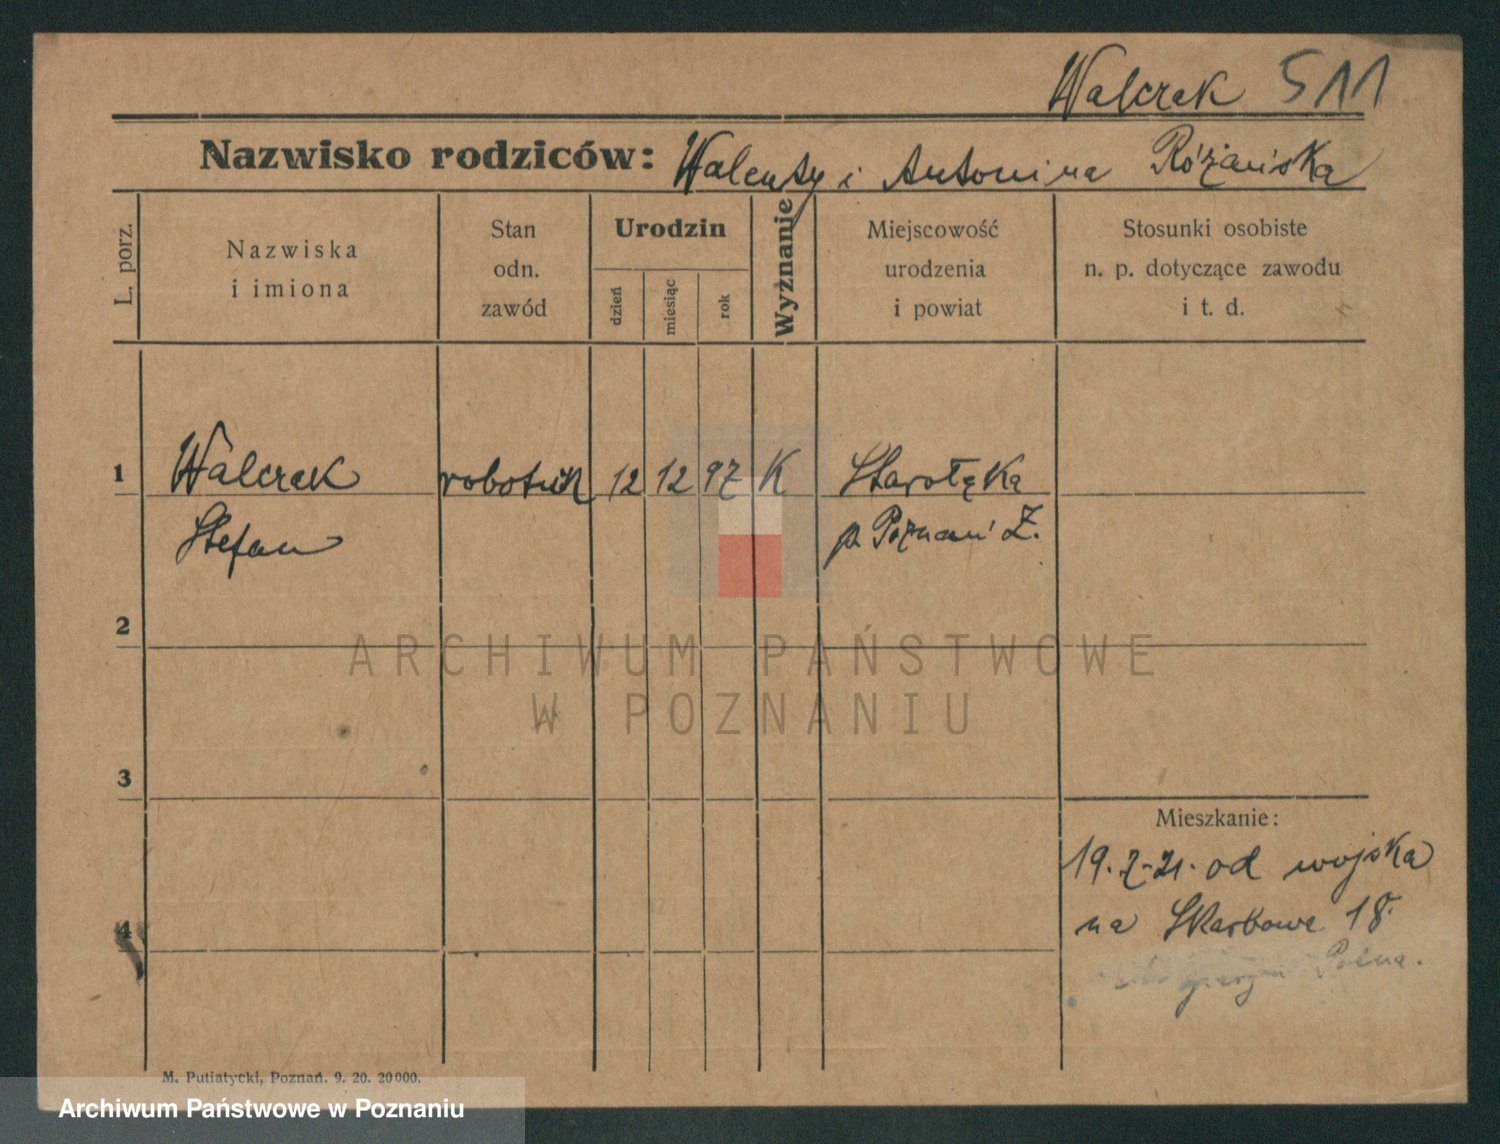 Walczak 511
Nazwisko rodziców: Walenty i Antonina Różańska
L. porz.
Nazwiska
i imiona
Stan
odn.
zawód
Urodzin
dzień
miesiąc
rok
Wyżnanie
Miejscowość
urodzenia
i powiat
Stosunki osobiste
n. p. dotyczące zawodu
i t. d.
1 Walczak robotnik 12 12 97 K Starołęka
Stefan p. Poznań Z.
2
3
4
Mieszkanie:
19.7.21. od wojska
na Skarbowe 18.
Polna.
M. Putiatycki, Poznań. 9. 20. 20000.
ARCHIWUM PAŃSTWOWE
W POZNANIU
Archiwum Państwowe w Poznaniu